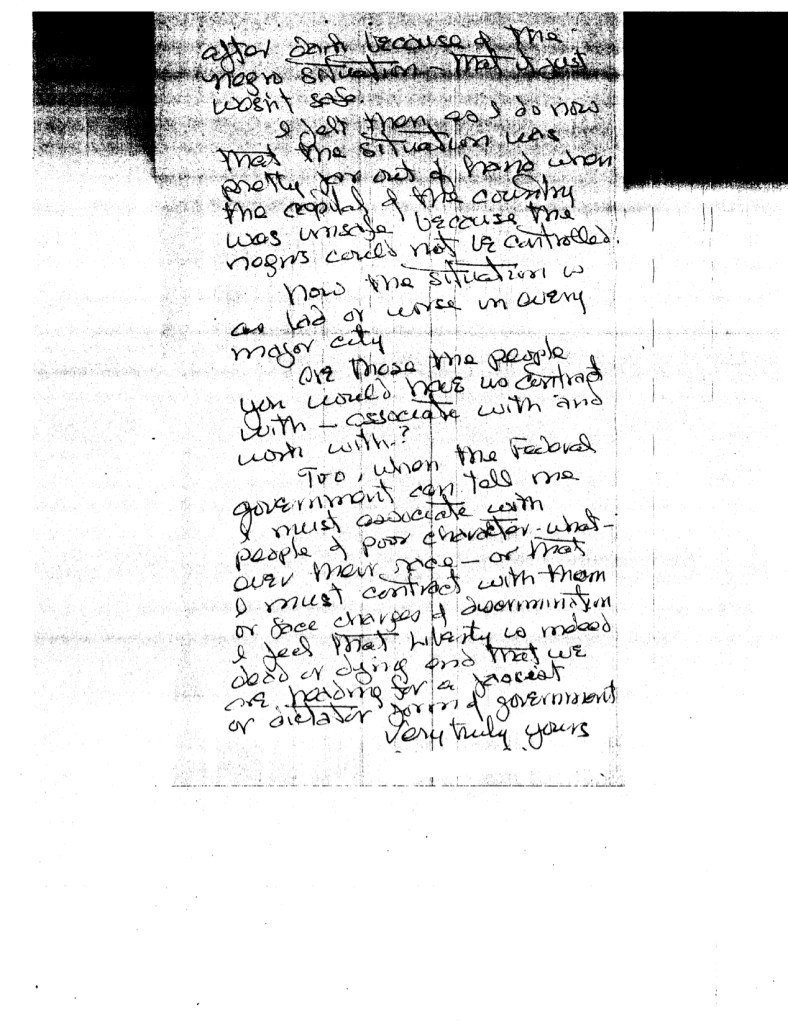 after dark because of the
negro situation - that it just
wasn't safe.
I felt then as I do now
that the situation was
pretty far out of hand when
the capital of the country
was unsafe because the
negros could not be controlled.
Now the situation is
as bad or worse in every
major city
Are these the people
you would have us contract
with - associate with and
work with?
Too, when the Federal
government can tell me
I must associate with
people of poor character - what-
ever their race - or that
I must contract with them
or face charges of discrimination
I feel that Liberty is indeed
dead or dying and that we
are heading for a fascist
or dictator form of government
Very truly yours